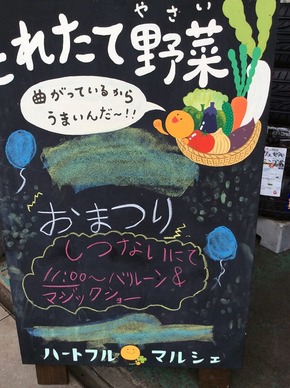 やさい
とれたて野菜
曲がっているから
うまいんだ~!!
おまつり
しつないにて
11:00~バルーン&
マジックショー
ハートフル マルシェ